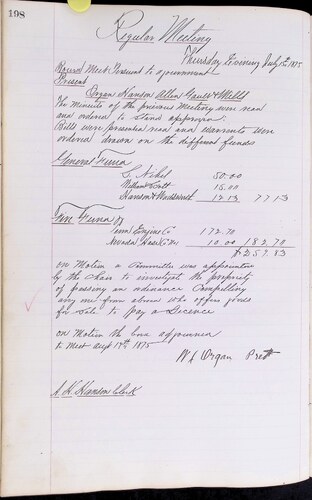 198
Regular Meeting
Thursday Evening July 1st 1875
Board Meet Pursuant to agreement
Present
Organ Hanson Allen Gauss & Mills
The Minutes of the previous Meeting were read
and ordered to Stand approved.
Bills were presented read and warrants were
ordered drawn on the different funds
General Fund
50.00
15.00
Hanson & Wadsworth 12.13 77.13
Fire Fund
Fire Engine Co 172.70
Nevada Hose Co 10.00 182.70
$ 259.83
On Motion a Committee was appointed
by the Chair to investigate the propriety
of passing an ordinance Compelling
any one from abroad who offers goods
for Sale to pay a Licence
On Motion the board adjourned
to Meet Augt 1875
W S Organ Prest
Hanson Clerk